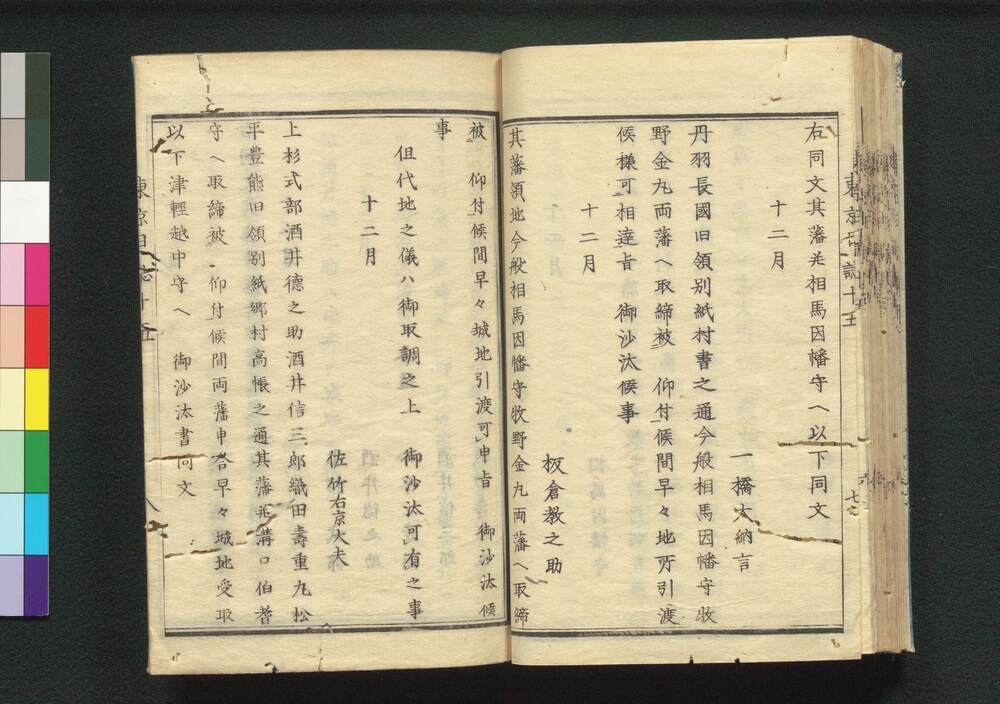 右同文其藩并相馬因幡守ヘ以下同文
十二月
一橋大納言
丹羽長國旧領別紙村書之通今般相馬因幡守牧
野金丸両藩ヘ取締被　仰付候間早々地所引渡
候様可相達旨　御沙汰候事
十二月
板倉教之助
其藩領地今般相馬因幡守牧野金丸両藩ヘ取締
被　仰付候間早々城地引渡可申旨　御沙汰候
事
但代地之儀ハ御取調之上　御沙汰可有之事
十二月
佐竹右京大夫
上杉式部酒井徳之助酒井信三郎織田壽重丸松
平豊熊旧領別紙郷村高帳之通其藩并溝口伯耆
守ヘ取締被　仰付候間両藩申合早々城地受取
以下津輕越中守ヘ　御沙汰書同文
東京日誌十五